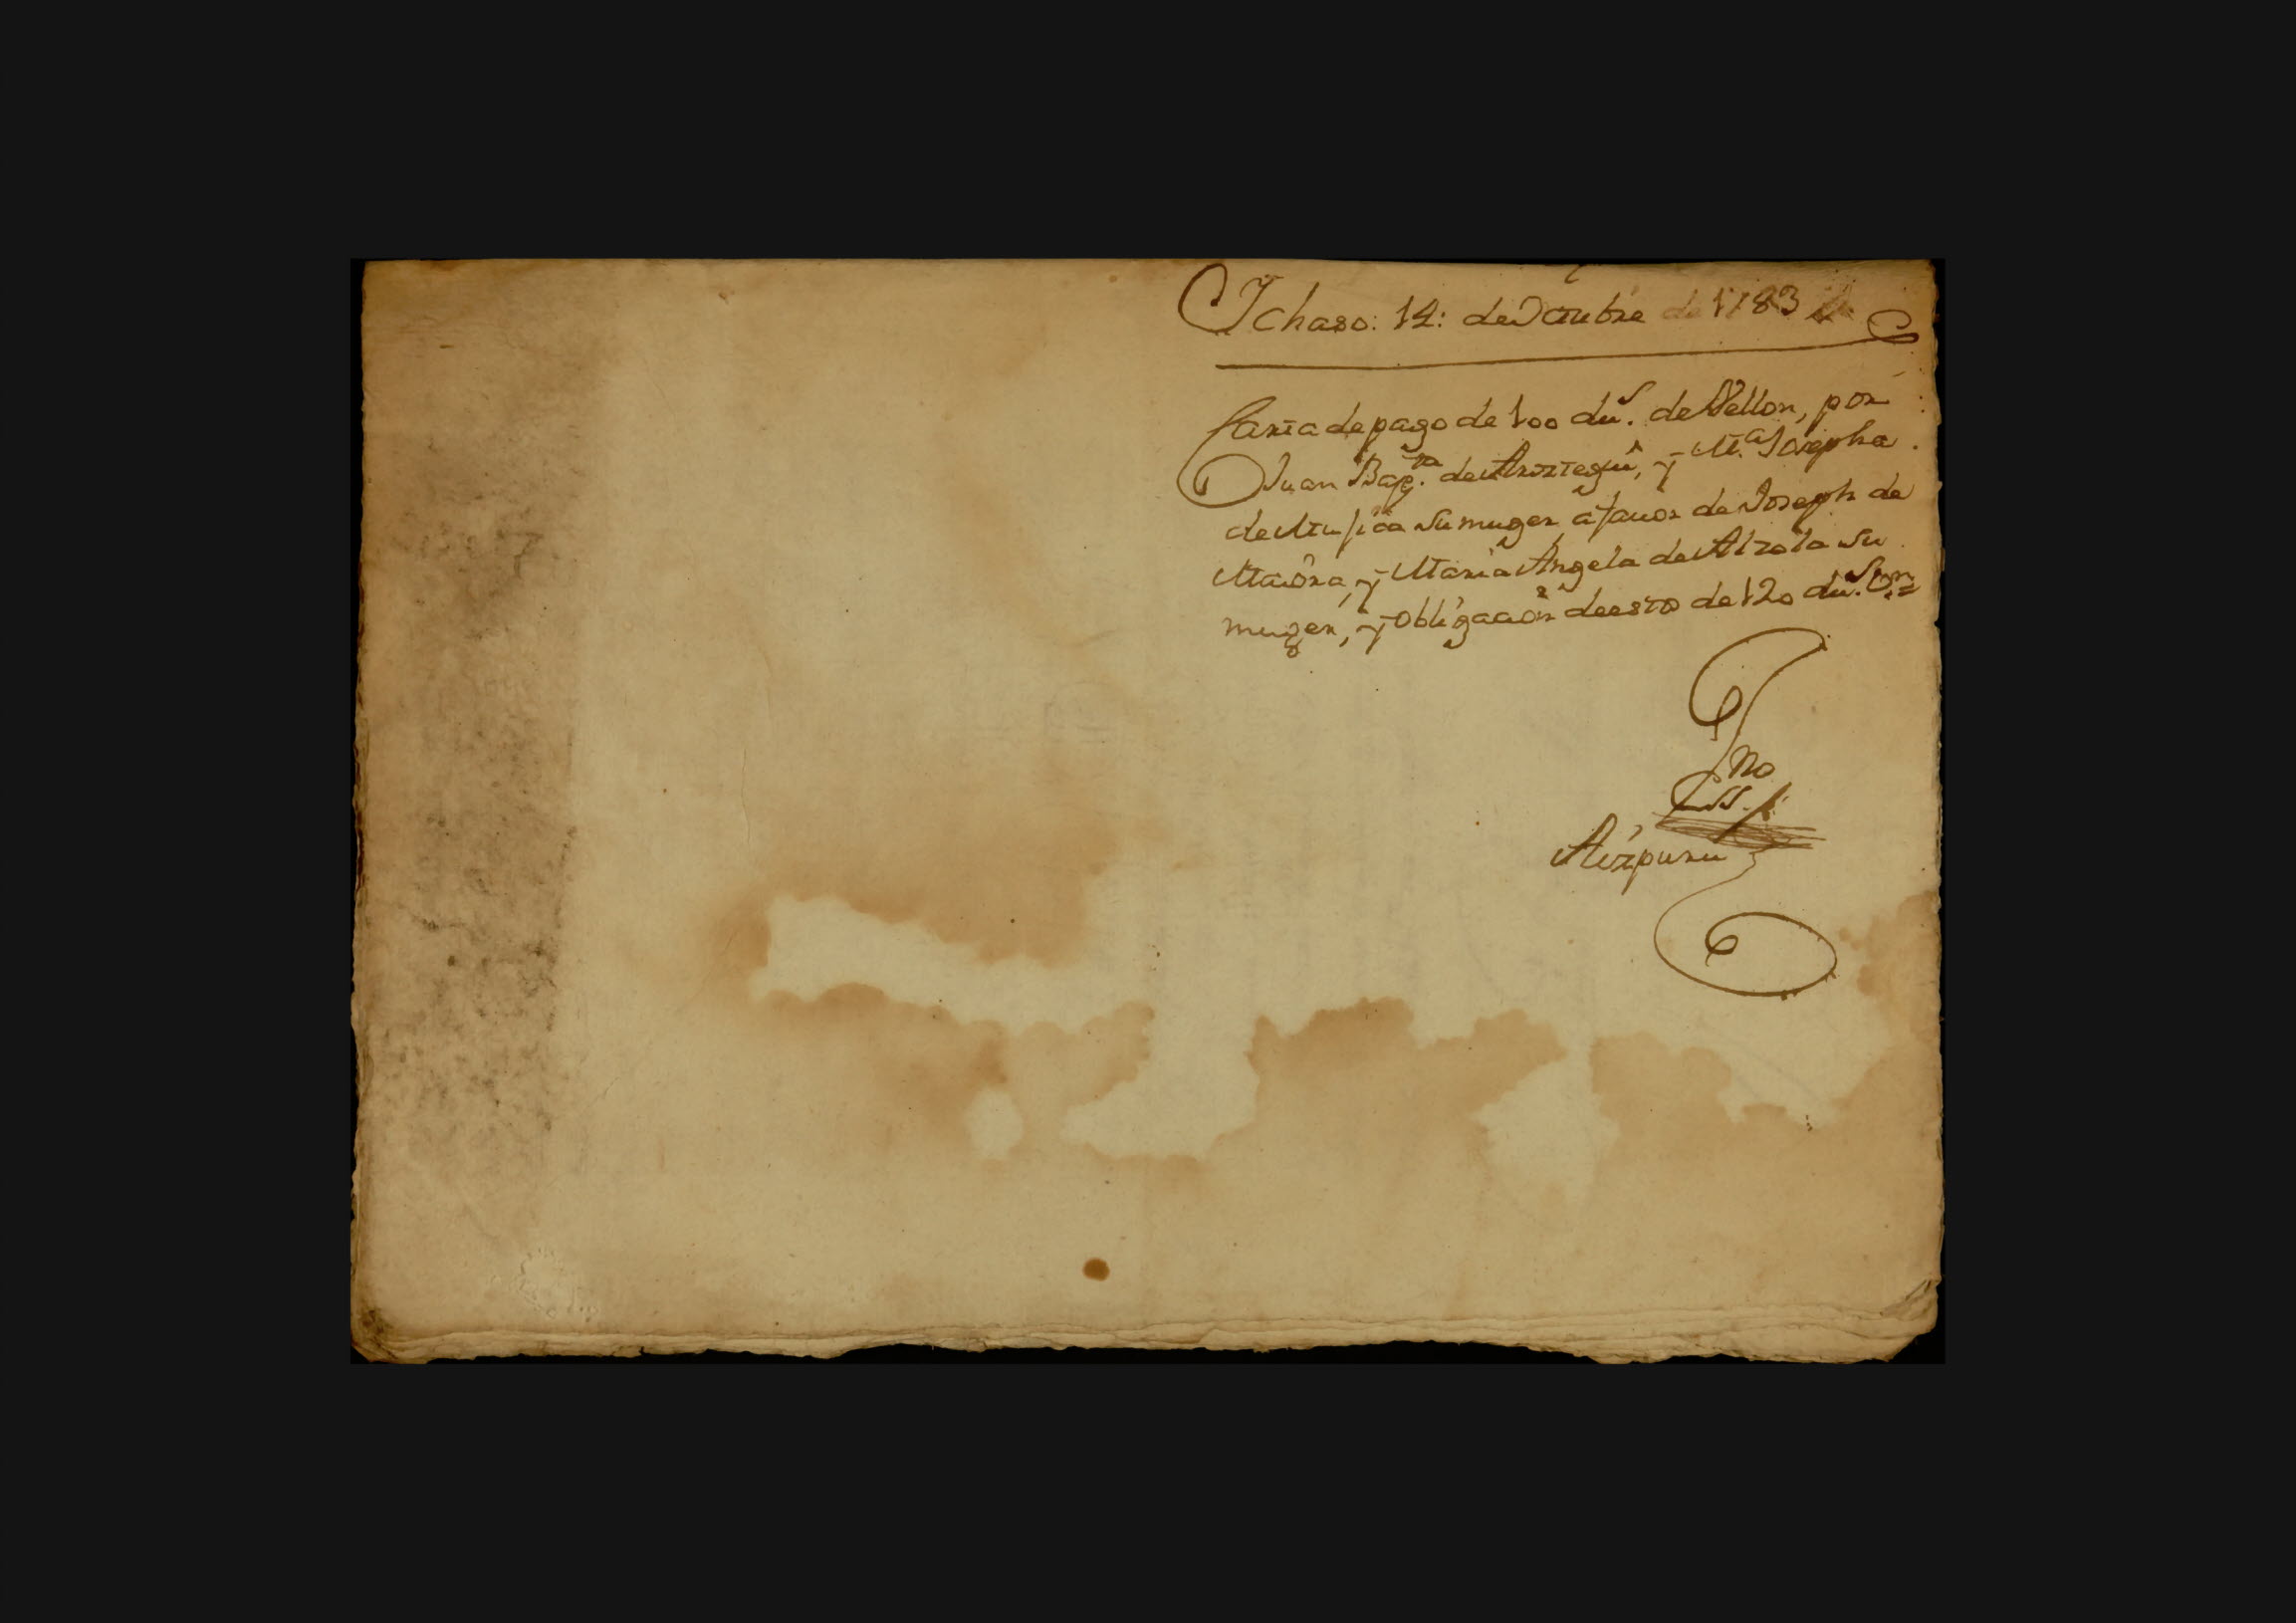 Ichaso: 14: de Octubre de 1783
Carta de pago de 100 du.s de Vellon, por
Juan Bap.ta de Ariztegui, y M.a Josepha
de Muxica su muger, a favor de Joseph de
Maiora, y Maria Angela de Alzola su
muger, y obligacion de esto de 120 du.s
Ess.no
Aizpuru